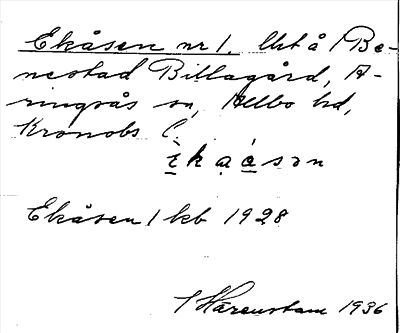 Ekåsen nr 1. Urt å 1 Be-
nestad Billagård, A-
ringsås sn, Allbo hd,
Kronobs l.
èkạǻsɘn
Ekåsen 1 kb 1928
S Härenstam 1936